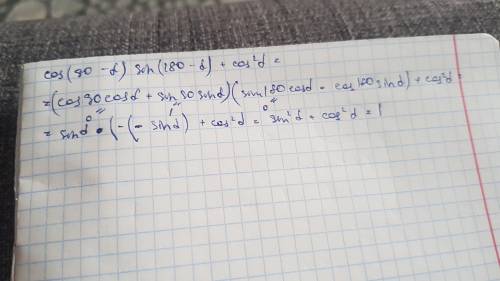 cos(90 - α) sin(180 - α) + cos²α =
= (cos 90 cos α + sin 90 sin α)(sin 180 cos α - cos 180 sin α) + cos²α =
0 1 0
= sin α • (-(- sin α) + cos²α = sin²α + cos²α = 1